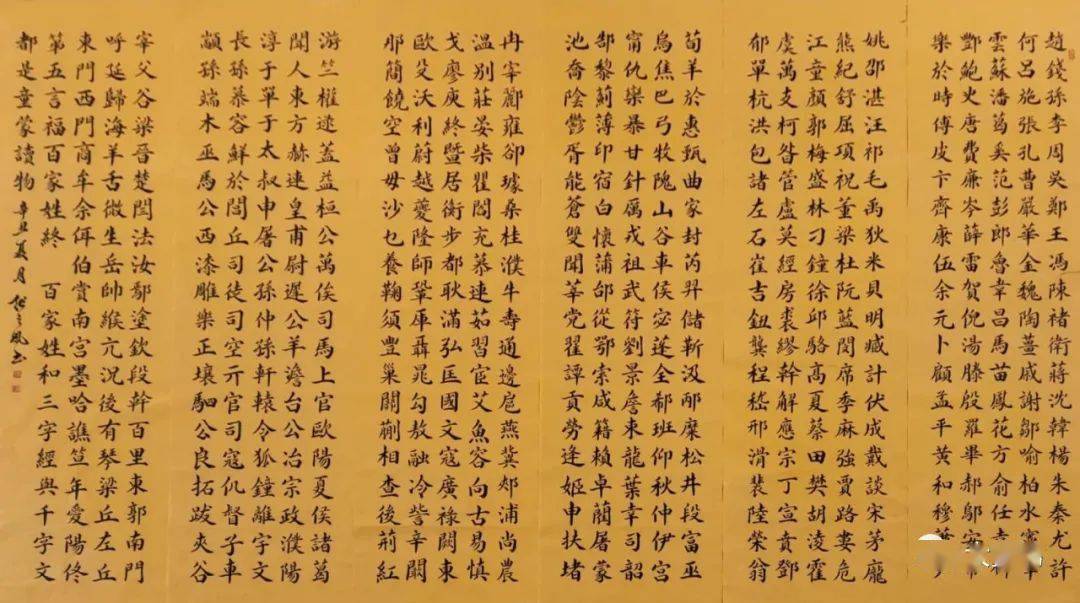 趙錢孫李周吳鄭王馮陳褚衛蔣沈韓楊朱秦尤許
何呂施張孔曹嚴華金魏陶薑戚謝鄒喻柏水竇章
雲蘇潘葛奚范彭郎魯韋昌馬苗鳳花方俞任袁柳
酆鮑史唐費廉岑薛雷賀倪湯滕殷羅畢郝鄔安常
樂於時傅皮卞齊康伍余元卜顧孟平黃和穆
姚邵湛汪祁毛禹狄米貝明臧計伏成戴談宋茅龐
熊紀舒屈項祝董梁杜阮藍閔席季麻強賈路婁危
江童顏郭梅盛林刁鐘徐邱駱高夏蔡田樊胡凌霍
虞萬支柯昝管盧莫經房裘繆幹解應宗丁宣賁鄧
郁單杭洪包諸左石崔吉鈕龔程嵇邢滑裴陸榮翁
荀羊於惠甄曲家封芮羿儲靳汲邴糜松井段富巫
烏焦巴弓牧隗山谷車侯宓蓬全郗班仰秋仲伊宮
甯仇欒暴甘針厲戎祖武符劉景詹束龍葉幸司韶
郜黎薊薄印宿白懷蒲邰從鄂索咸籍賴卓藺屠蒙
池喬陰鬱胥能蒼雙聞莘党翟譚貢勞逄姬申扶堵
冉宰酈雍卻璩桑桂濮牛壽通邊扈燕冀郟浦尚農
溫別莊晏柴瞿閻充慕連茹習宦艾魚容向古易慎
戈廖庾終暨居衡步都耿滿弘匡國文寇廣祿闕東
歐殳沃利蔚越夔隆師鞏厙聶晁勾敖融冷訾辛闞
那簡饒空曾毋沙乜養鞠須豐巢關蒯相查後荊紅
游竺權逯蓋益桓公萬俟司馬上官歐陽夏侯諸葛
聞人東方赫連皇甫尉遲公羊澹台公冶宗政濮陽
淳于單于太叔申屠公孫仲孫軒轅令狐鐘離宇文
長孫慕容鮮於閭丘司徒司空亓官司寇仉督子車
顓孫端木巫馬公西漆雕樂正壤駟公良拓跋夾谷
宰父谷梁晉楚閆法汝鄢塗欽段幹百里東郭南門
呼延歸海羊舌微生岳帥緱亢況後有琴梁丘左丘
東門西門商牟佘佴伯賞南宮墨哈譙笪年愛陽佟
第五言福百家姓終 百家姓和三字經與千字文
都是童蒙讀物 辛丑夏月